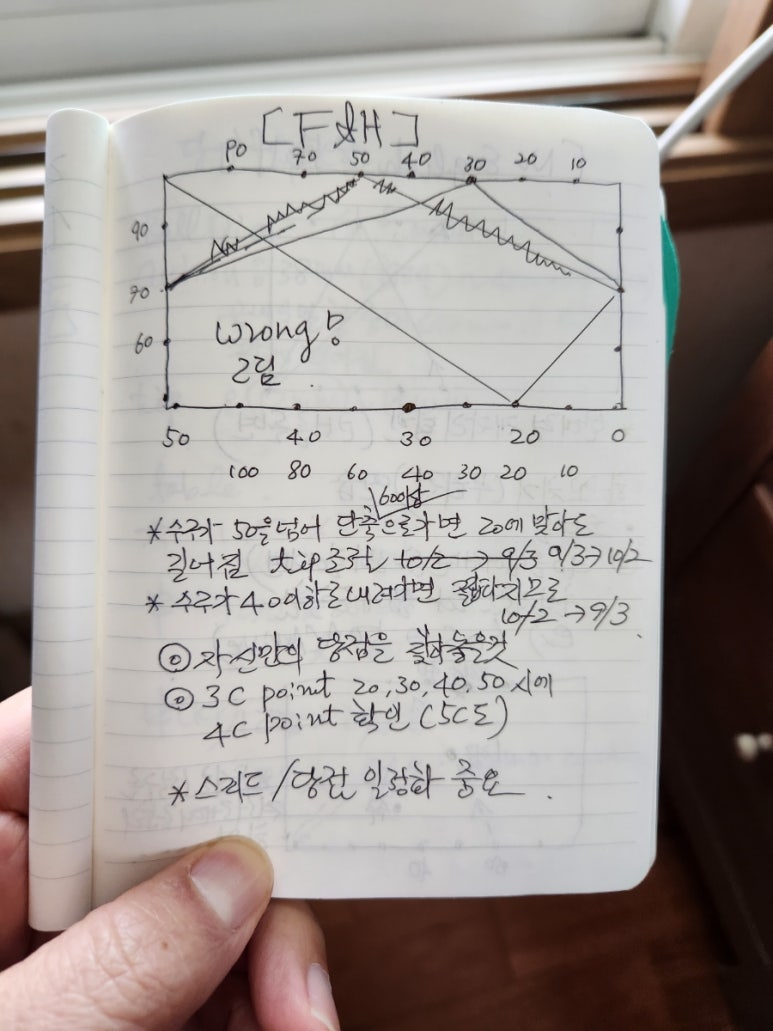 [F&H]
90 70 50 40 30 20 10
90
70
60
wrong!
그림
50 40 30 20 0
100 80 60 40 30 20 10
60이상
*수구가 50을 넘어 단축으로가면 20에 맞아도
길어짐 tip 조절 10/2 → 9/3 9/3→10/2
* 수구가 40이하로 내려가면 짧아지므로
10/2 → 9/3
◎ 자신만의 당점을 찾아놓을것
◎ 3C point 20, 30, 40, 50 시에
4C point 확인 (5C도)
*스피드/당점 일정화 중요.